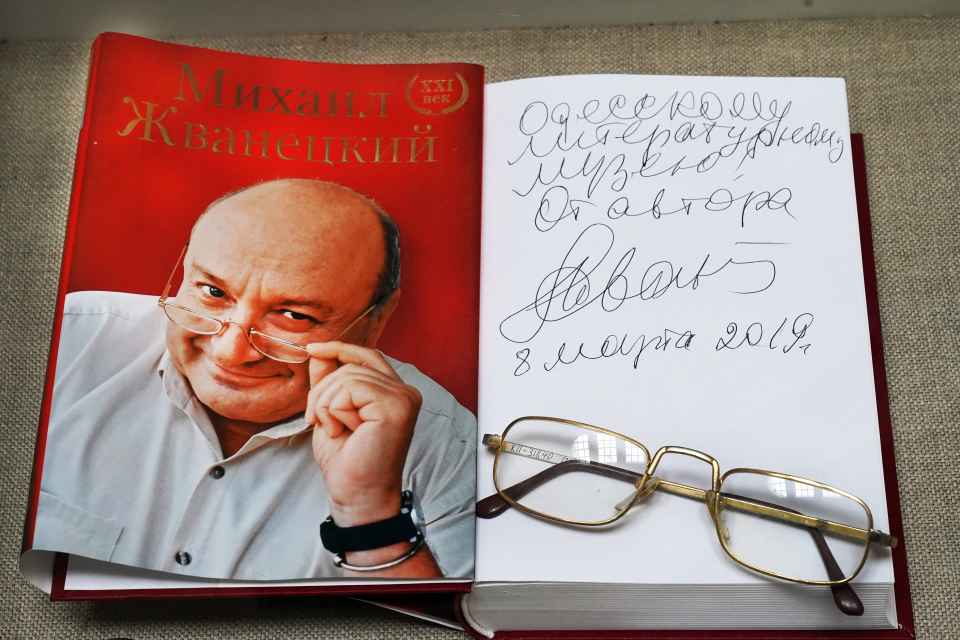 Михаил
Жванецкий
XXI
век
Одесскому
литературному
музею
от автора
8 марта 2019г